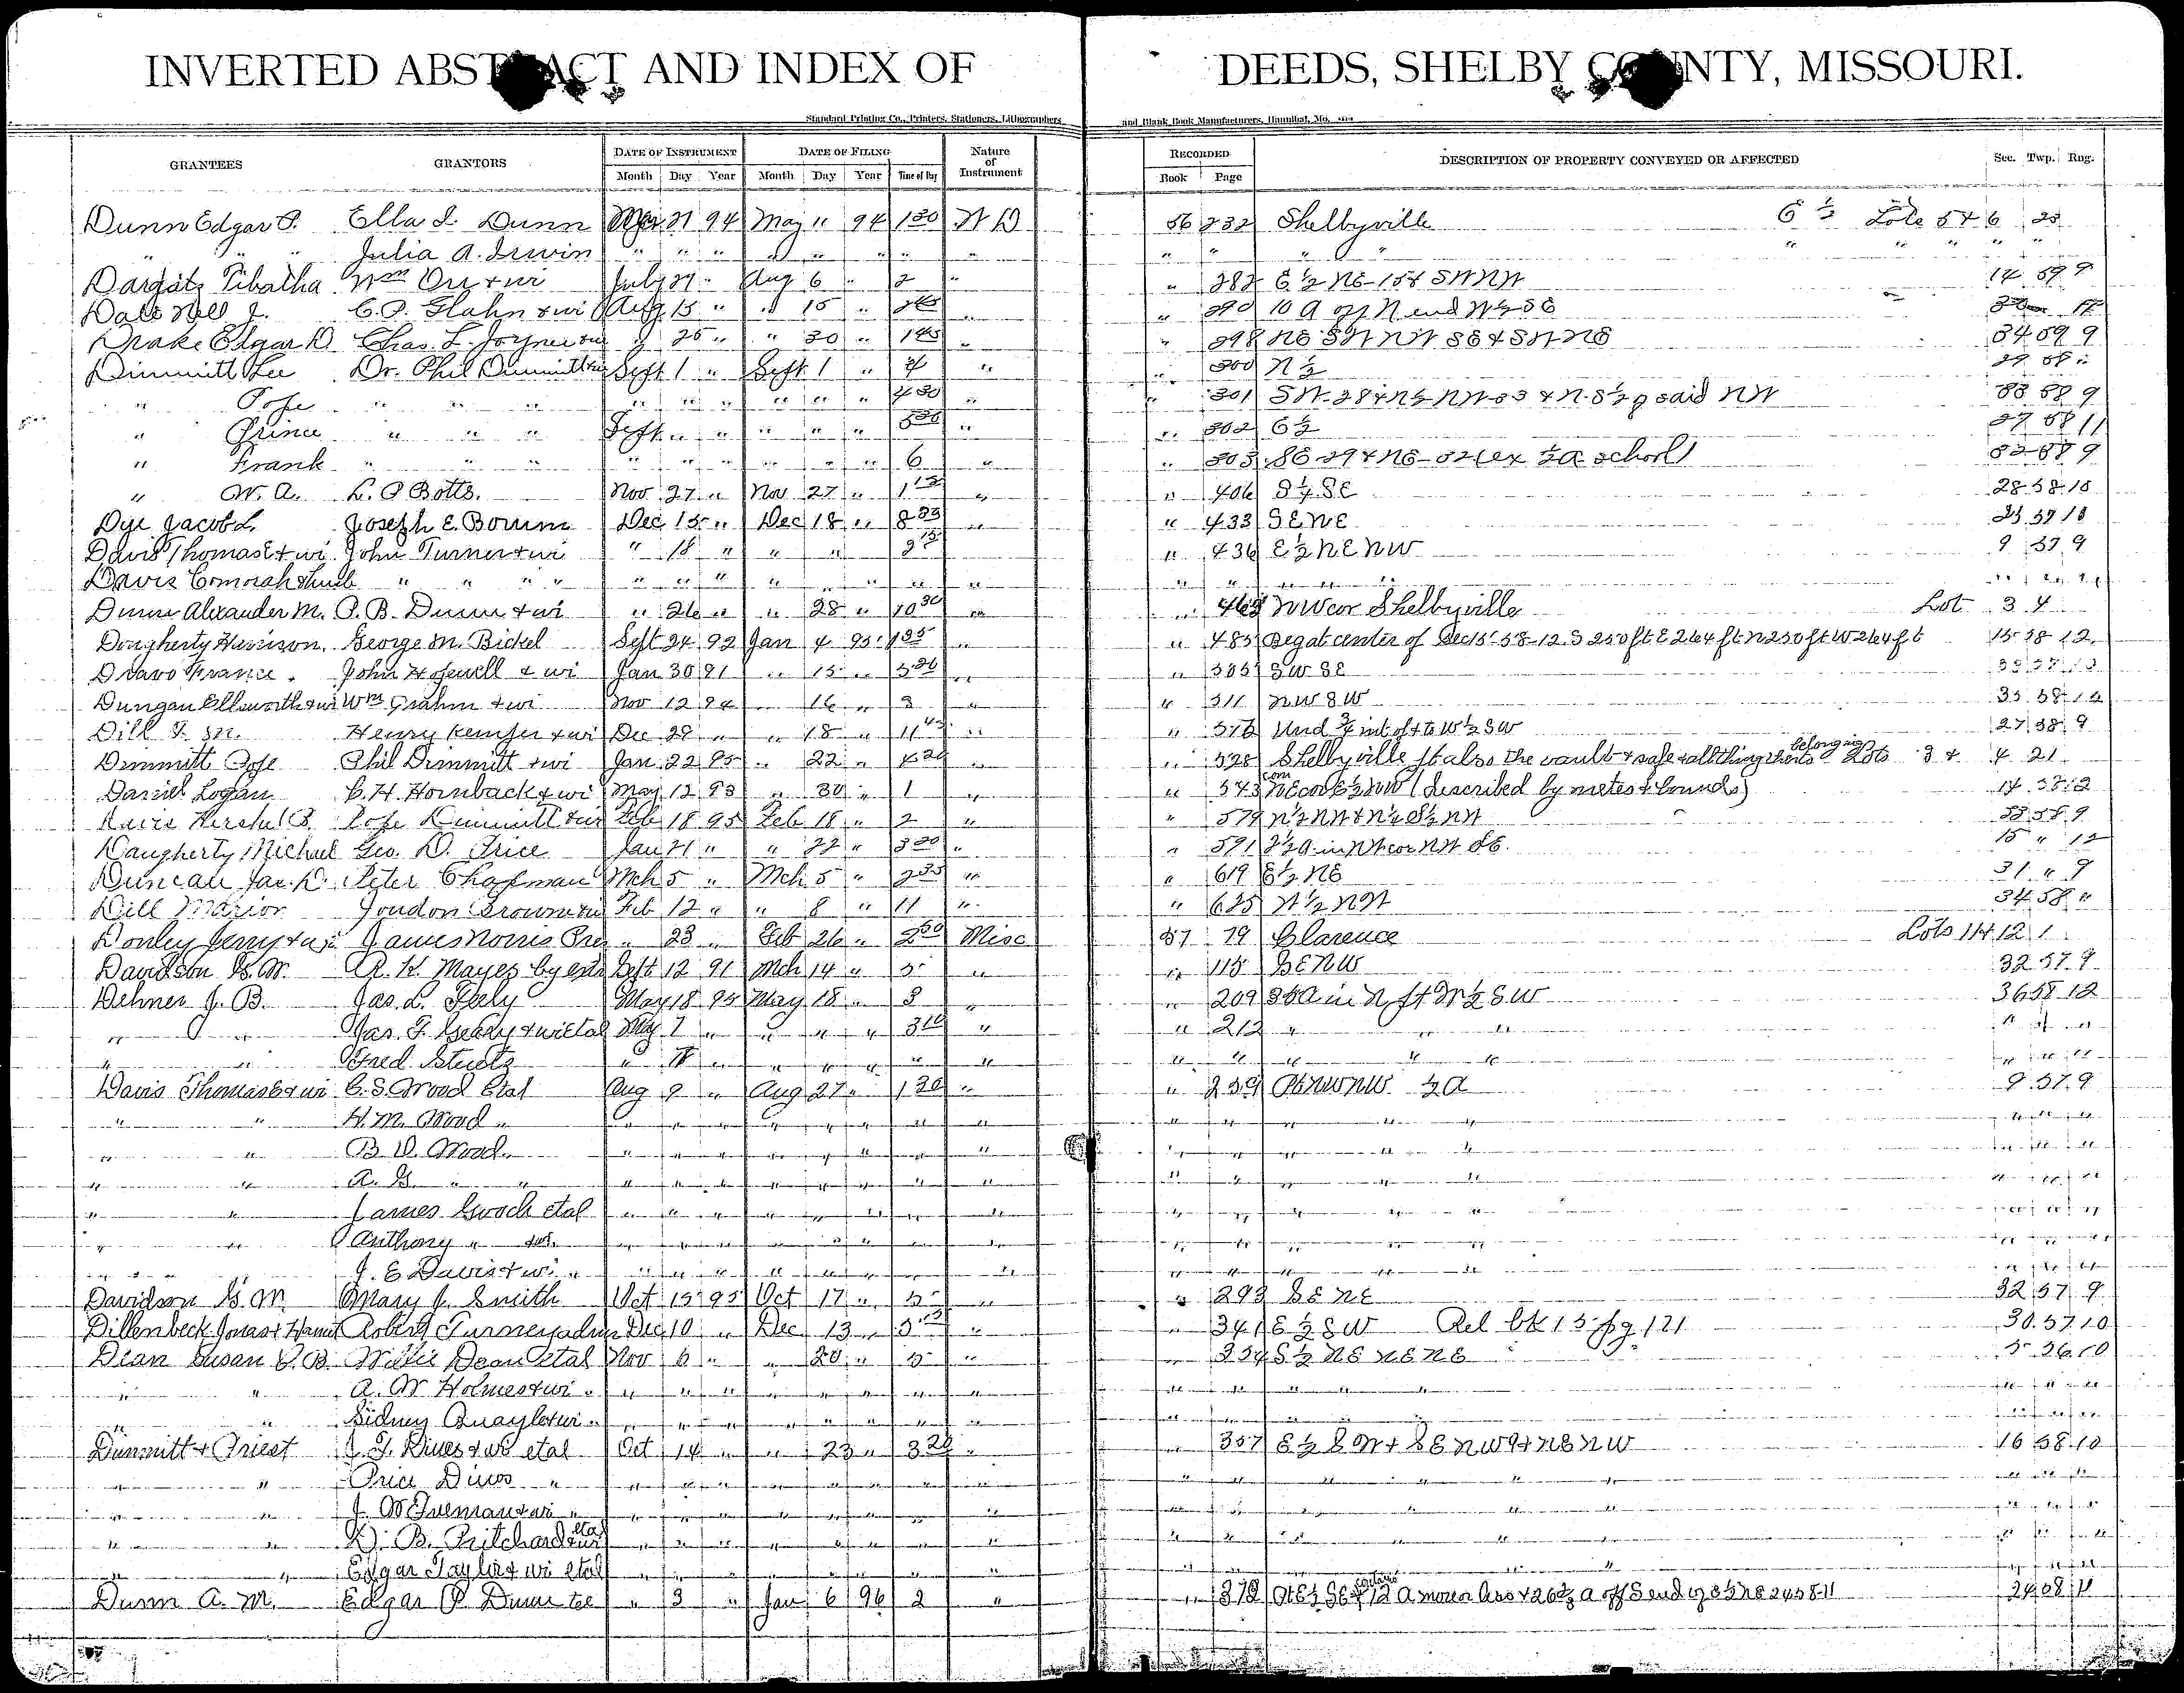 INVERTED ABSTRACT AND INDEX OF DEEDS, SHELBY COUNTY, MISSOURI.
Standard Printing Co., Printers, Stationers, Lithographers and Blank Book Manufacturers, Hannibal, Mo.
GRANTEES GRANTORS DATE OF INSTRUMENT DATE OF FILING Nature of Instrument RECORDED DESCRIPTION OF PROPERTY CONVEYED OR AFFECTED Sec. Twp. Rng.
Month Day Year Month Day Year Time of Day Book Page
Dunn Edgar P. Ella I. Dunn 21 94 May 11 94 1 30 W D 56 232 Shelbyville E ½ Lots 5 & 6 23
" " " Julia A. Irwin " " " " " " " " " " " "
Tibatha Wm Orr & wi July 27 " Aug 6 " 2 " " 282 E ½ NE-15 & SW NW 14 59 9
Dale Nell J. C. P. Glahn & wi Aug 15 " " 15 " " " 290 10 A off N end W ½ SE
Drake Edgar D Chas. L. Joyner & wi " 25 " " 30 " 1 45 " " 298 NE SW NW SE & SW NE 34 59 9
Dimmitt Lee Dr. Phil Dimmitt & wi Sept 1 " Sept 1 " 4 " " 300 N ½ 29 58 "
" Pope " " " " " " " " " 4 30 " " 301 SW-28 & N½ NW-33 & N-S½ of said NW 33 58 9
" Prince " " " Sept " " " " " " " 302 E ½ 27 58 11
" Frank " " " " " " " " " 6 " " 303 SE-29 & NE-32 (ex ½ a school) 32 58 9
" W. A. L. P Botts. Nov 27 " Nov 27 " 1 15 " " 406 S ½ SE 28 58 10
Dye Jacob L. Joseph E. Bourn Dec 15 " Dec 18 " 8 35 " " 433 SE NE 23 57 10
Davis Thomas E & wi John Turner & wi " 18 " " " 2 15 " 436 E ½ NE NW 9 57 9
Davis Comorah & husb " " " " " " " " " " " " " " "
Dunn Alexander M. P. B. Dunn & wi " 26 " " 28 " 10 30 " " 463 NW cor Shelbyville Lot 3 4
Dougherty Harrison. George M. Bickel Sept 24 92 Jan 4 95 1 35 " " 485 Beg at center of Sec 15-58-12. S 250 ft E 264 ft N 250 ft W 264 ft 15 58 12
Dravo France. John Hopewell & wi Jan 30 91 " 15 " 3 30 " " 505 SW SE
Dungan Ellsworth & wi Wm Grahm & wi Nov 12 94 " 16 " 3 " " 511 NW SW 33 58 12
Dill F. M. Henry Kemper & wi Dec 29 " " 18 " 11 45 " " 516 Und ¾ int of & to W ½ SW 27 58 9
Dimmitt Pope Phil Dimmitt & wi Jan 22 95 " 22 " 4 20 " " 528 Shelbyville also the vault & safe & all things thereto belonging Lots 3 & 4 21
Daniel Logan C. H. Hornback & wi May 12 93 " 30 " 1 " " 543 com NE cor E ½ NW (described by metes & bounds) 14 58 12
Davis Hershel B. Pope Dimmitt & wi Feb 18 95 Feb 18 " 2 " " 579 N ½ NW & N ½ S ½ NW 33 58 9
Daugherty Michael Geo. D. Price Jan 21 " " 22 " 3 30 " " 591 2½ a in NW cor NW SE. 15 " 12
Duncan Jas. D. Peter Chapman Mch 5 " Mch 5 " 2 35 " " 619 E ½ NE 31 " 9
Dill Marion Joudon Brown & wi Feb 12 " " 8 " 11 " " 625 W ½ NW 34 58 "
Donley Jerry & wi James Norris Pres " 23 " Feb 26 " 2 50 Misc 57 79 Clarence Lots 11 & 12 1
Davidson G. W. A. K. Mayes by exr Sept 12 91 Mch 14 " 5 " " 115 SE NW 32 57 9
Dehner J. B. Jas. L. Feely May 18 95 May 18 " 3 " " 209 in N pt W ½ SW 36 58 12
" " Jas. F. Geary & wi etal May 7 " " " " 3 10 " " 212 " " " " "
" " Fred Stuetz " " " " " " " " " " " " " " "
Davis Thomas E & wi C. S. Wood etal Aug 9 " Aug 27 " 1 30 " " 239 Pt NW NW ½ a 9 57 9
" " H. M. Wood " " " " " " " " " " " " " " " "
" " B. D. Wood " " " " " " " " " " " " " " "
" " A. G. " " " " " " " " " " " " " " " " "
" " James Gwoch etal " " " " " " " " " " " " " " "
" " Anthony " & wi " " " " " " " " " " " " " " "
" " J. E Davis & wi " " " " " " " " " " " " " " " "
Davidson G. W. Mary J. Smith Oct 15 95 Oct 17 " 5 " " 293 SE NE 32 57 9
Dillenbeck Jonas & Harriet Robert Turney adm Dec 10 " Dec 13 " " " 341 E ½ SW Rel bk 15 pg 121 30 57 10
Dean Susan C. B. Willie Dean etal Nov 6 " " 20 " 5 " " 354 S ½ NE NE NE 5 56 10
" " A. W Holmes & wi " " " " " " " " " " " " " " " "
" " Sidney Quayle & wi " " " " " " " " " " " " " "
Dimmitt & Priest J. F. Dines & wi etal Oct 14 " " 23 " 3 20 " " 357 E ½ SW & SE NW & NE NW 16 58 10
" " Price Dines " " " " " " " " " " " " " " " "
" " J. W Freeman & wi " " " " " " " " " " " " " " " "
" " D. B. Pritchard & wi etal " " " " " " " " " " " " " " "
" " Edgar Taylor & wi etal " " " " " " " " " " " " "
Dunn A. M. Edgar P Dunn tee " 3 " Jan 6 96 2 " " 370 12 A more or less & 26⅔ a off S end of E ½ NE 24 58 11 24 58 11